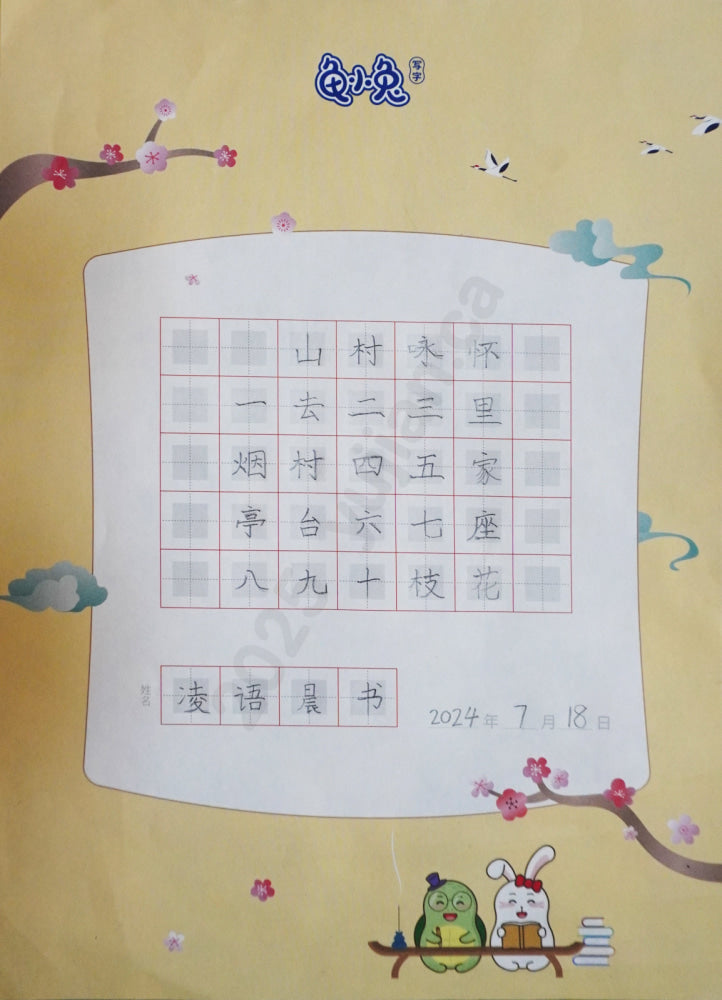 龟小兔
写字
山村咏怀
一去二三里
烟村四五家
亭台六七座
八九十枝花
姓名 凌语晨书
2024年7月18日
2025 yujian.ca